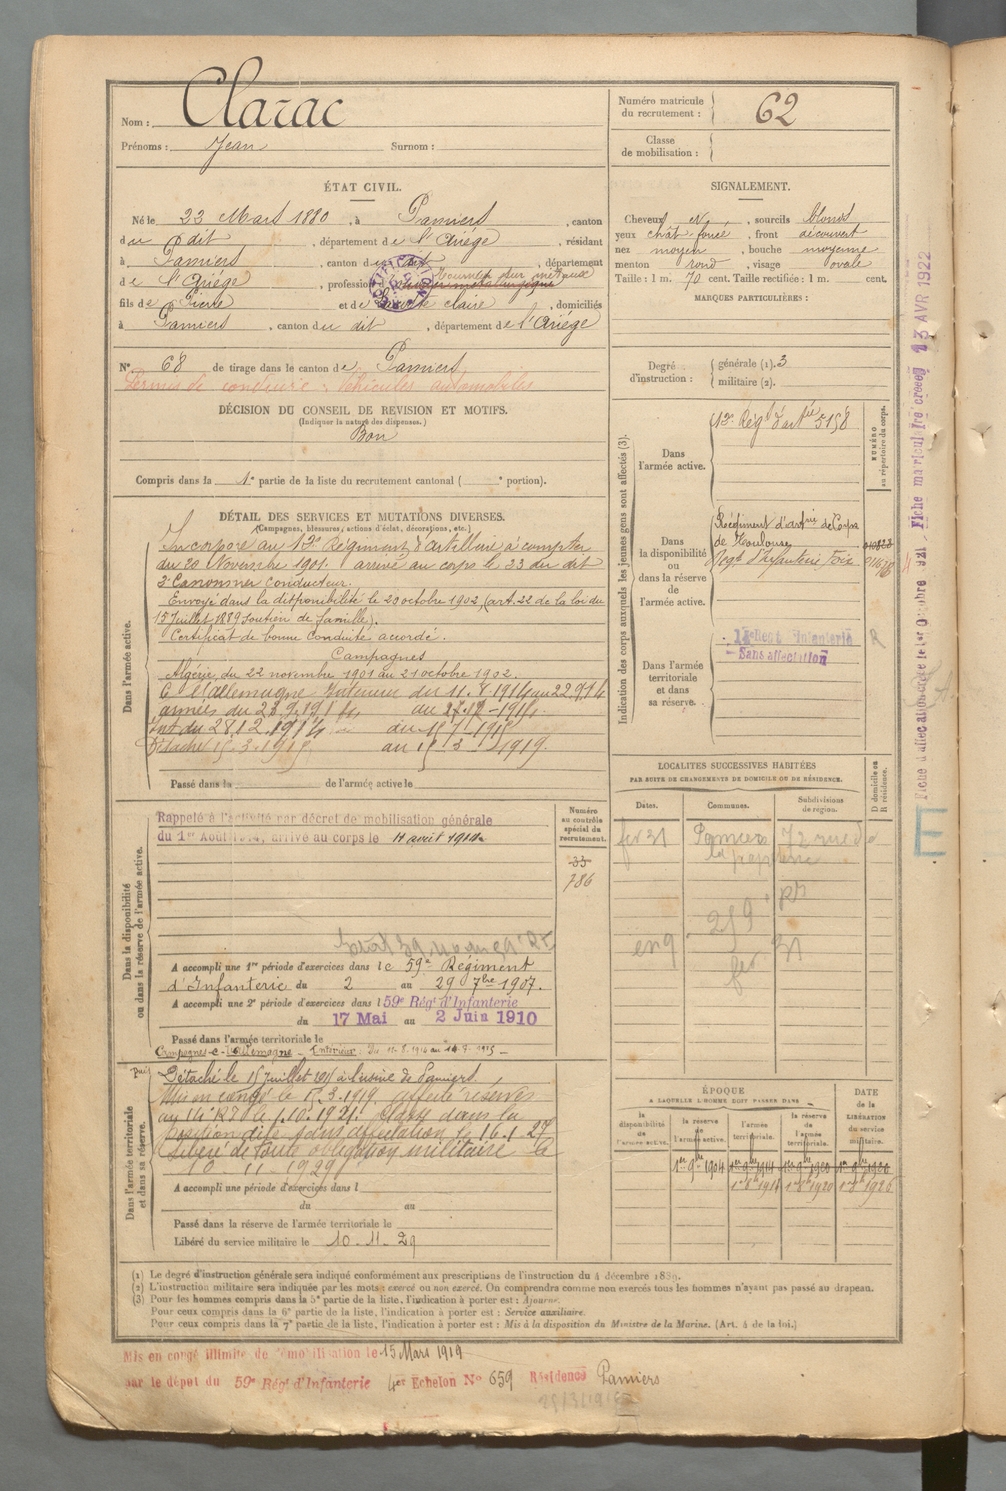 Nom : Clarac
Prénoms : Jean Surnom :
Numéro matricule du recrutement : 62
Classe de mobilisation :
ÉTAT CIVIL.
Né le 22 Mars 1880, à Pamiers, canton
du dit, département de l'Ariège, résidant
à Pamiers, canton du dit, département
de l'Ariège, profession Tourneur sur métaux
fils de Pierre et de claire, domiciliés
à Pamiers, canton du dit, département de l'Ariège
N° 68 de tirage dans le canton de Pamiers
Permis de conduire : Véhicules automobiles
DÉCISION DU CONSEIL DE REVISION ET MOTIFS.
(Indiquer la nature des dispenses.)
Bon
Compris dans la 1e partie de la liste du recrutement cantonal ( e portion).
SIGNALEMENT.
Cheveux et sourcils blonds
yeux chât. foncé, front découvert
nez moyen, bouche moyenne
menton rond, visage ovale
Taille : 1 m. 70 cent. Taille rectifiée : 1 m. cent.
MARQUES PARTICULIÈRES :
Degré d'instruction : générale (1). 3
militaire (2).
DÉTAIL DES SERVICES ET MUTATIONS DIVERSES.
(Campagnes, blessures, actions d'éclat, décorations, etc.)
Dans l'armée active.
Incorporé au 12e Régiment d'artillerie à compter
du 20 Novembre 1901. arrivé au corps le 23 du dit
2e Canonnier conducteur.
Envoyé dans la disponibilité le 20 octobre 1902, (art. 22 de la loi du
15 Juillet 1889 Soutien de famille).
Certificat de bonne Conduite accordé.
Campagnes
Algérie, du 22 novembre 1901 au 21 octobre 1902.
C. et allemagne Intérieur du 11.8.1914 au 22.9.14
armées du 23.9.1914 au 27.12-1914.
Int du 28.12.1914 au 15-7-1915
Détaché au 15 3 1919.
Passé dans la de l'armée active le
Indication des corps auxquels les jeunes gens sont affectés (3).
NUMÉRO au répertoire du corps.
Dans l'armée active.
12e Régt d'artie 5158
Dans la disponibilité ou dans la réserve de l'armée active.
Régiment d'artie de Corps
de Toulouse
Regt d'Infanterie Foix
Dans l'armée territoriale et dans sa réserve.
14e Regt Infanterie
Sans affectation
R
Fiche d'affectation créée le 1er Octobre 1921 - Fiche matricul Fre créée 13 AVR 1922
E
Dans la disponibilité ou dans la réserve de l'armée active.
Rappelé à l'activité par décret de mobilisation générale
du 1er Août 1914, arrivé au corps le 11 août 1914
Numéro au contrôle spécial du recrutement.
33
786
A accompli une 1re période d'exercices dans le 59e Régiment
d'Infanterie du 2 au 29 7bre 1907.
A accompli une 2e période d'exercices dans l 59e Régt d'Infanterie
du 17 Mai au 2 Juin 1910
Passé dans l'armée territoriale le
Campagnes C. l'Allemagne - Intérieur : Du 11.8.1914 au 14.7.1915 -
LOCALITES SUCCESSIVES HABITÉES
PAR SUITE DE CHANGEMENTS DE DOMICILE OU DE RÉSIDENCE.
Dates. Communes. Subdivisions de région. D domicile ou R résidence.
fev 31 Pamiers 72 rue de
la papeterie
Dans l'armée territoriale et dans sa réserve.
Détaché le 15 Juillet 1915 à l'usine de Pamiers.
Mis en congé le 15.3.1919. affecté réserves
au 14e RI le 1.10.1921. Classé dans la
position dite sans affectation le 16.1.27
Libéré de toute obligation militaire le
10 - 11 - 1929
A accompli une période d'exercices dans l
du au
Passé dans la réserve de l'armée territoriale le
Libéré du service militaire le 10-11-29
ÉPOQUE
A LAQUELLE L'HOMME DOIT PASSER DANS
la disponibilité de l'armée active. la réserve de l'armée active. l'armée territoriale. la réserve de l'armée territoriale. DATE de la LIBÉRATION du service militaire.
1er 9bre 1904 1er 9bre 1914 1er 9bre 1920 1er 9bre 1926
(1) Le degré d'instruction générale sera indiqué conformément aux prescriptions de l'instruction du 4 décembre 1889.
(2) L'instruction militaire sera indiquée par les mots : exercé ou non exercé. On comprendra comme non exercés tous les hommes n'ayant pas passé au drapeau.
(3) Pour les hommes compris dans la 5e partie de la liste, l'indication à porter est : Ajourné.
Pour ceux compris dans la 6e partie de la liste, l'indication à porter est : Service auxiliaire.
Pour ceux compris dans la 7e partie de la liste, l'indication à porter est : Mis à la disposition du Ministre de la Marine. (Art. 4 de la loi.)
Mis en congé illimité de démobilisation le 15 Mars 1919
par le dépot du 59e Régt d'Infanterie 4e Echelon N° 659 Résidence Pamiers